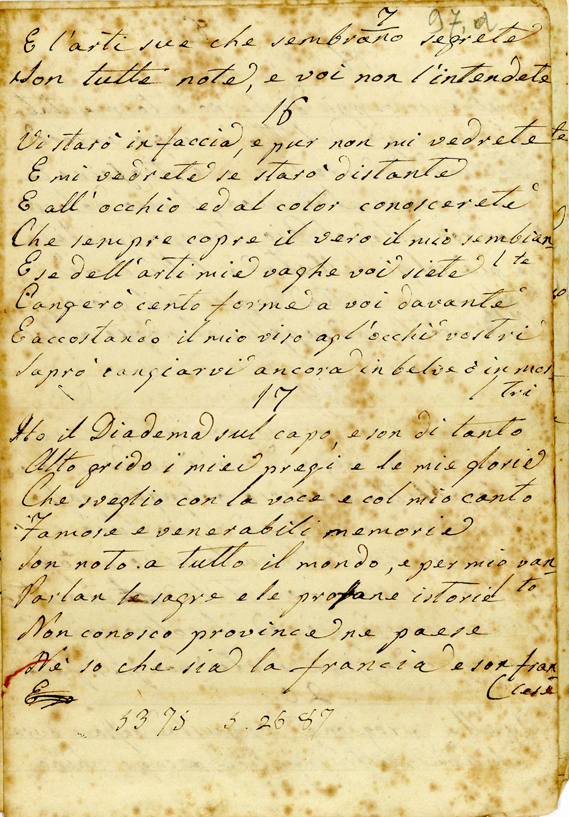 7
97,a
E l'arti sue che sembrano segrete
Son tutte note, e voi non l'intendete
16
Vi starò in faccia, e pur non mi vedrete
E mi vedrete se starò distante
E all'occhio ed al color conoscerete
Che sempre copre il vero il mio sembian-
te
E se dell'arti mie vaghe voi siete
Cangerò cento forme a voi davante
E accostando il mio viso agl'occhi vostri
Saprò cangiarvi ancora in belve ò in mos-
tri
17
Ho il Diadema sul capo, e son di tanto
Alto grido i miei pregi e le mie glorie
Che sveglio con la voce e col mio canto
Famose e venerabili memorie
Son noto a tutto il mondo, e per mio van-
to
Parlan le sagre e le profane istorie
Non conosco province ne paese
Nè so che sia la francia e son fran-
cese
E
5375 5.2687